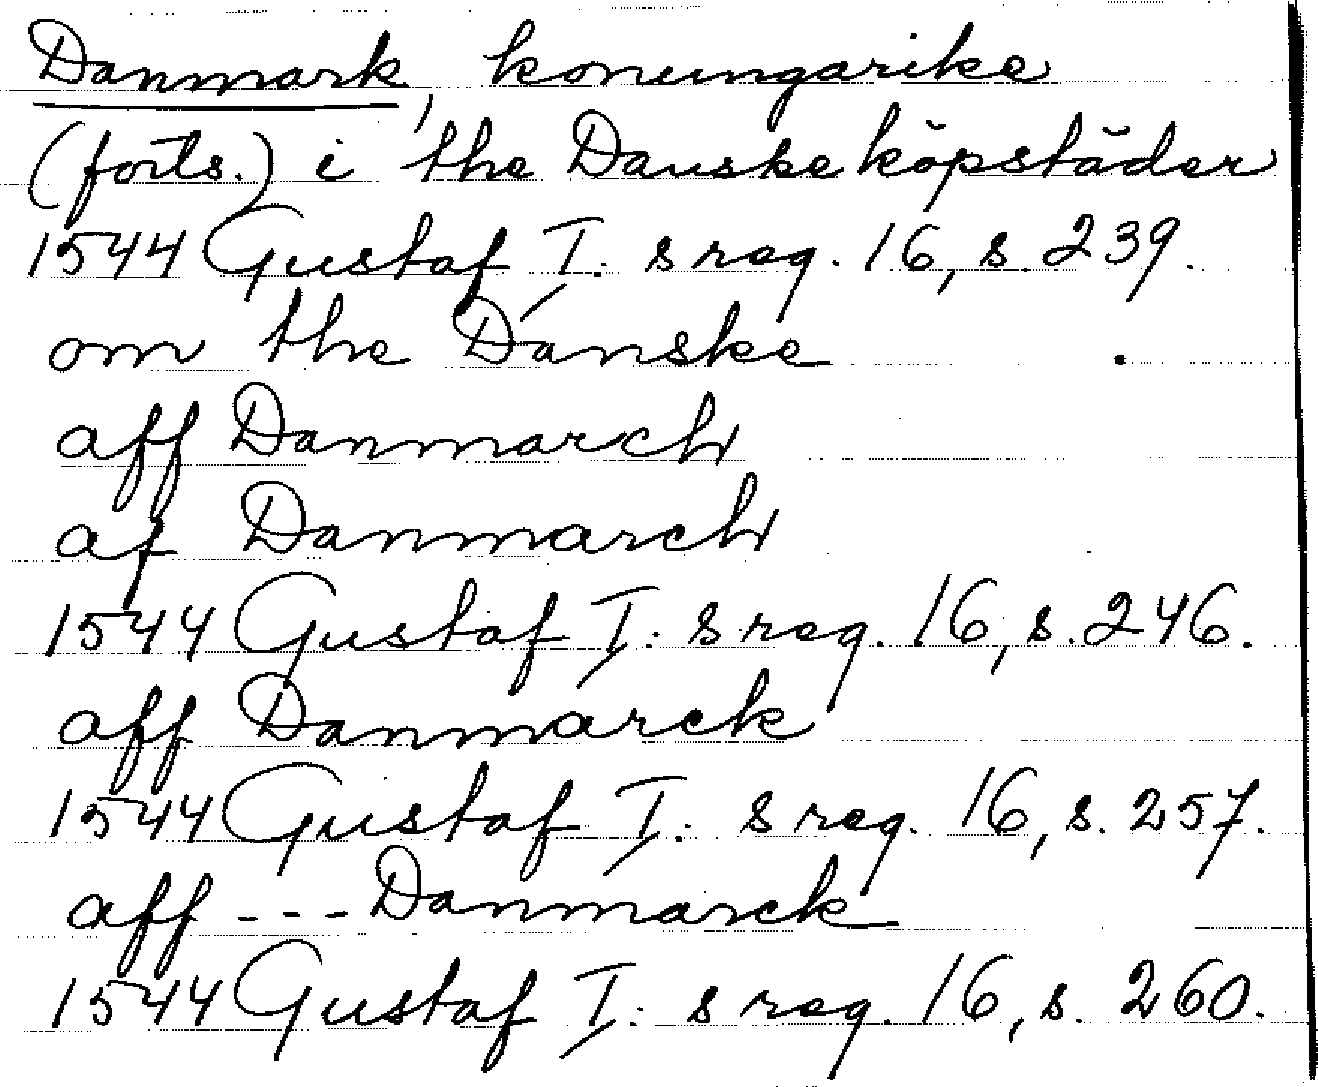 Danmark, konungarike
(forts.) i the Danske köpstäder
1544 Gustaf I:s reg. 16, s. 239.
om the Danske
aff Danmarch
af Danmarch
1544 Gustaf I:s reg. 16, s. 246.
aff Danmarck
1544 Gustaf I:s reg. 16, s. 257.
aff --- Danmarck
1544 Gustaf I:s reg. 16, s. 260.